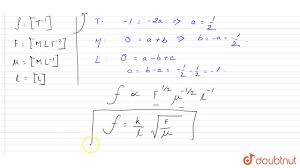 f = [T⁻¹]
F = [M L T⁻²]
μ = [M L⁻¹]
l = [L]
T: -1 = -2a ⇒ a = 1/2.
M: 0 = a+b ⇒ b=-a = -1/2.
L: 0 = a-b+c
c = b-a = -1/2 - 1/2 = -1.
f ∝ F^1/2 μ^-1/2 l⁻¹
f = k/l √(F/μ)
doubtnut